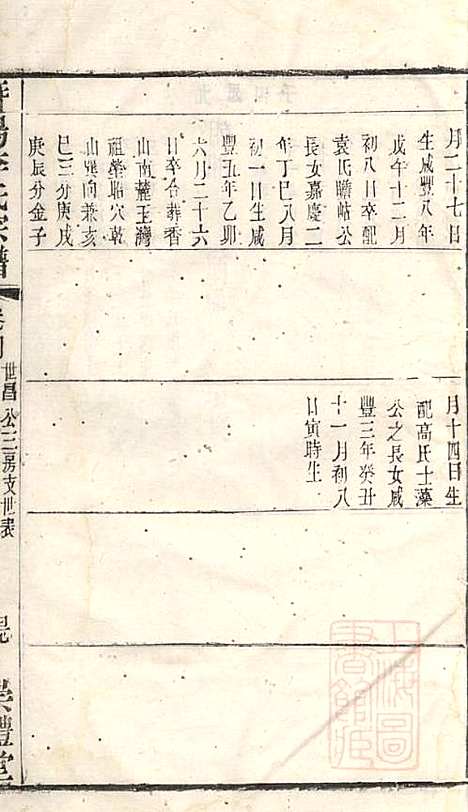 月二十七日
生咸豐八年
戊午十二月
初八日卒配
袁氏驥岵公
長女嘉慶二
年丁巳八月
初一日生咸
豐五年乙卯
六月二十六
日卒合葬香
山南麓玉灣
祖塋貽穴乾
山巽向兼亥
巳三分庚戌
庚辰分金子
月十四日生
配高氏士藻
公之長女咸
豐三年癸丑
十一月初八
日寅時生
陽李氏宗譜
世昌公三房支世表
禮堂
上海圖
書館藏